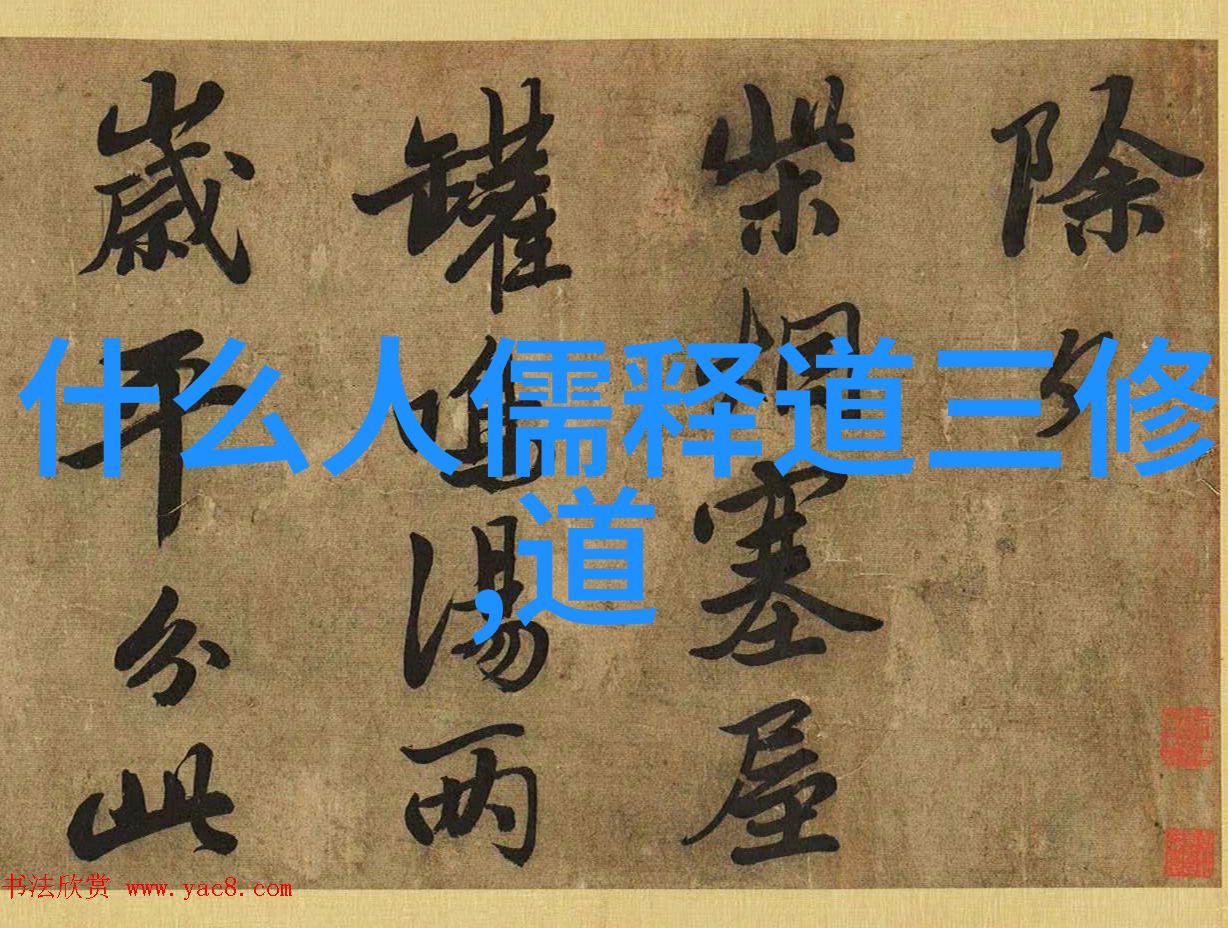 什么人儒释道三修
,道
除夕
柴烟塞屋
罐鳴湯两
歲平分此
书法欣赏 www.yac8.com